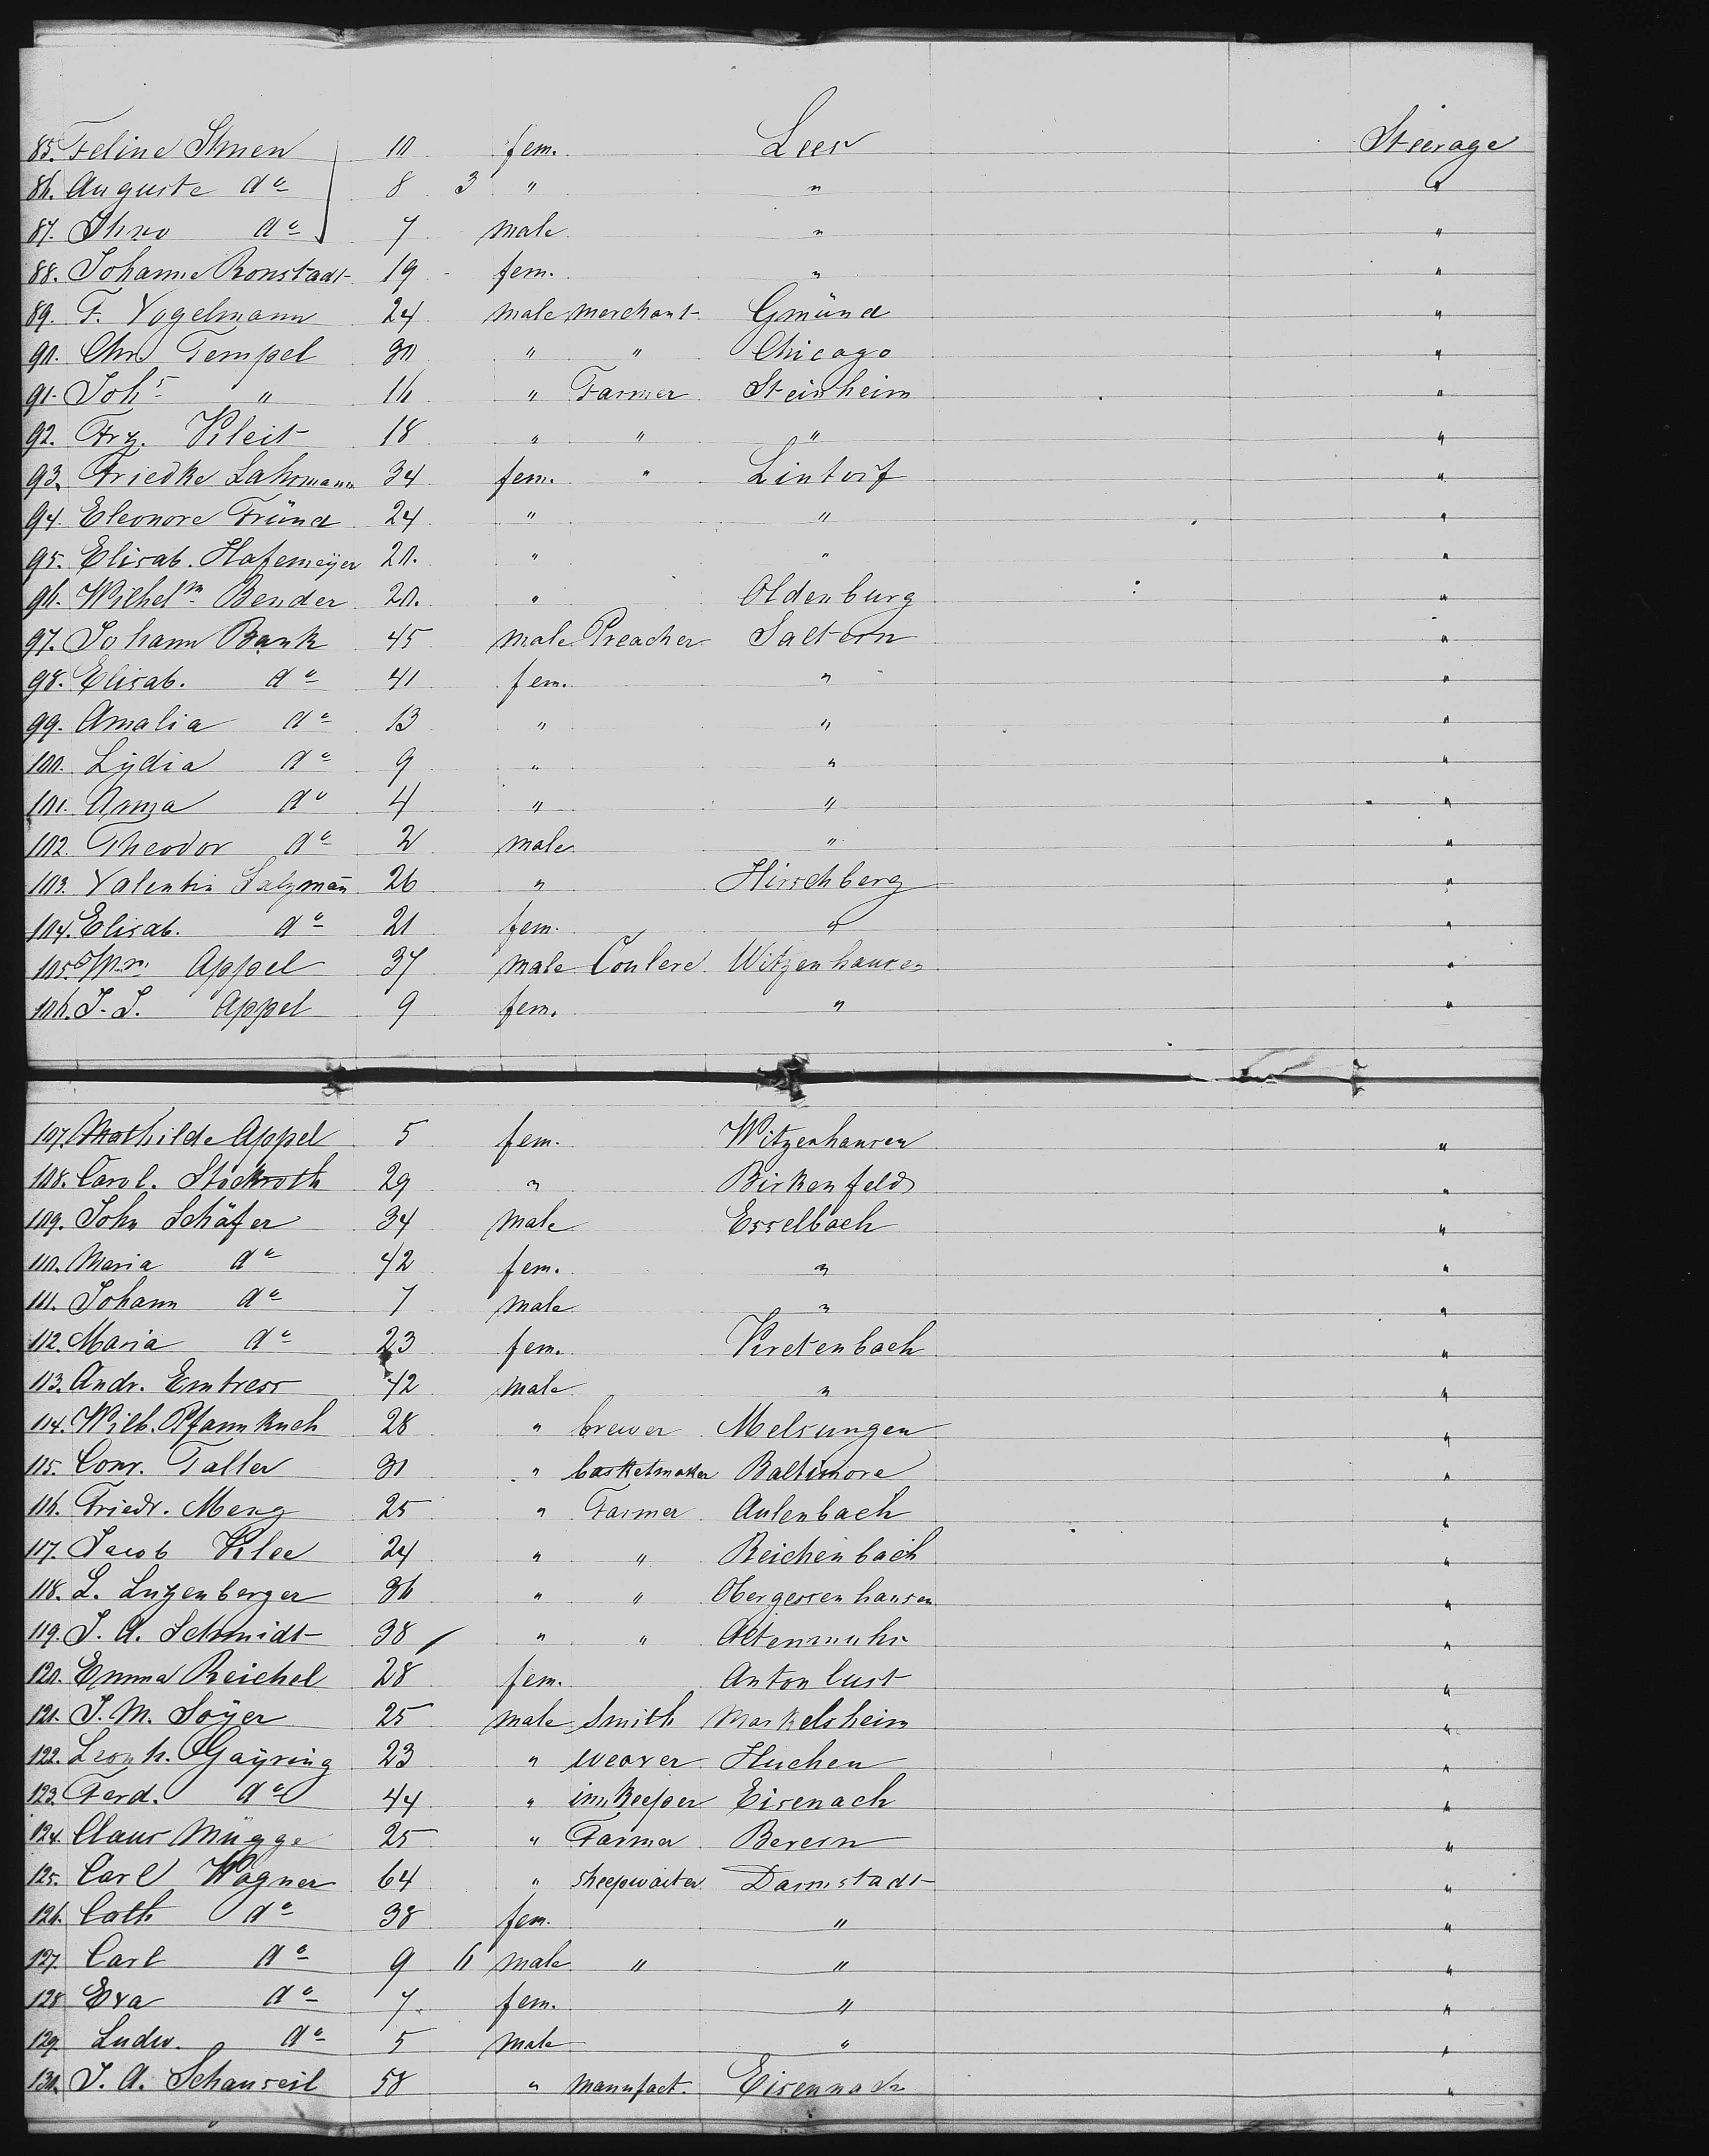 85. Feline Ihnen 10 fem. Leer Steerage
86. Auguste do 8 3 " " "
87. Ihno do 7 male " "
88. Johanne Ronstadt 19 - fem. " "
89. F. Vogelmann 24 male merchant Gmünd "
90. Chr. Tempel 30 " " Chicago "
91. Johs " 16 " Farmer Steinheim "
92. Frz. Kleit 18 " " " "
93. Friedke Lahrmann 34 fem. " Lintorf "
94. Eleonore Fründ 24 " " "
95. Elisab. Hafemeÿer 20. " " "
96. Wilhelm Bender 20. " Oldenburg "
97. Johann Bank 45 male Preacher Saltorn "
98. Elisab. do 41 fem. " "
99. Amalia do 13 " " "
100. Lÿdia do 9 " " "
101. Anna do 4 " " "
102. Theodor do 2 male " "
103. Valentin Salzmañ 26 " Hirschberg "
104. Elisab. do 21 fem. " "
105. Appel 37 male Witzenhausen "
106. J. J. Appel 9 fem. " "
107. Mathilde Appel 5 fem. Witzenhausen "
108. Carol. Stockroth 29 " Birkenfeld "
109. John Schäfer 34 male Esselbach "
110. Maria do 42 fem. " "
111. Johann do 7 male " "
112. Maria do 23 fem. Kretenbach "
113. Andr. Emtress 42 male " "
114. Wilh. Pfannkuch 28 " brewer Melsungen "
115. Conr. Faller 31 " basketmaker Baltimore "
116. Friedr. Merz 25 " Farmer Aulenbach "
117. Jacob Klee 24 " " Reichenbach "
118. L. Luzenberger 36 " " Obergessenhausen "
119. J. A. Schmidt 38 " " Altenmuhr "
120. Emma Reichel 28 fem. Antonlust "
121. J. M. Soÿer 25 male Smith Markelsheim "
122. Leonh. Gaÿring 23 " weaver Huchen "
123. Ferd. do 44 " innkeeper Eisenach "
124. Claus Mügge 25 " Farmer Bevern "
125. Carl Wagner 64 " sheepwaiter Darmstadt "
126. Cath do 38 fem. " "
127. Carl do 9 6 male " " "
128 Eva do 7. fem. " "
129. Ludw. do 5 male " "
130. J. A. Schauseil 58 " manufact. Eisennach "